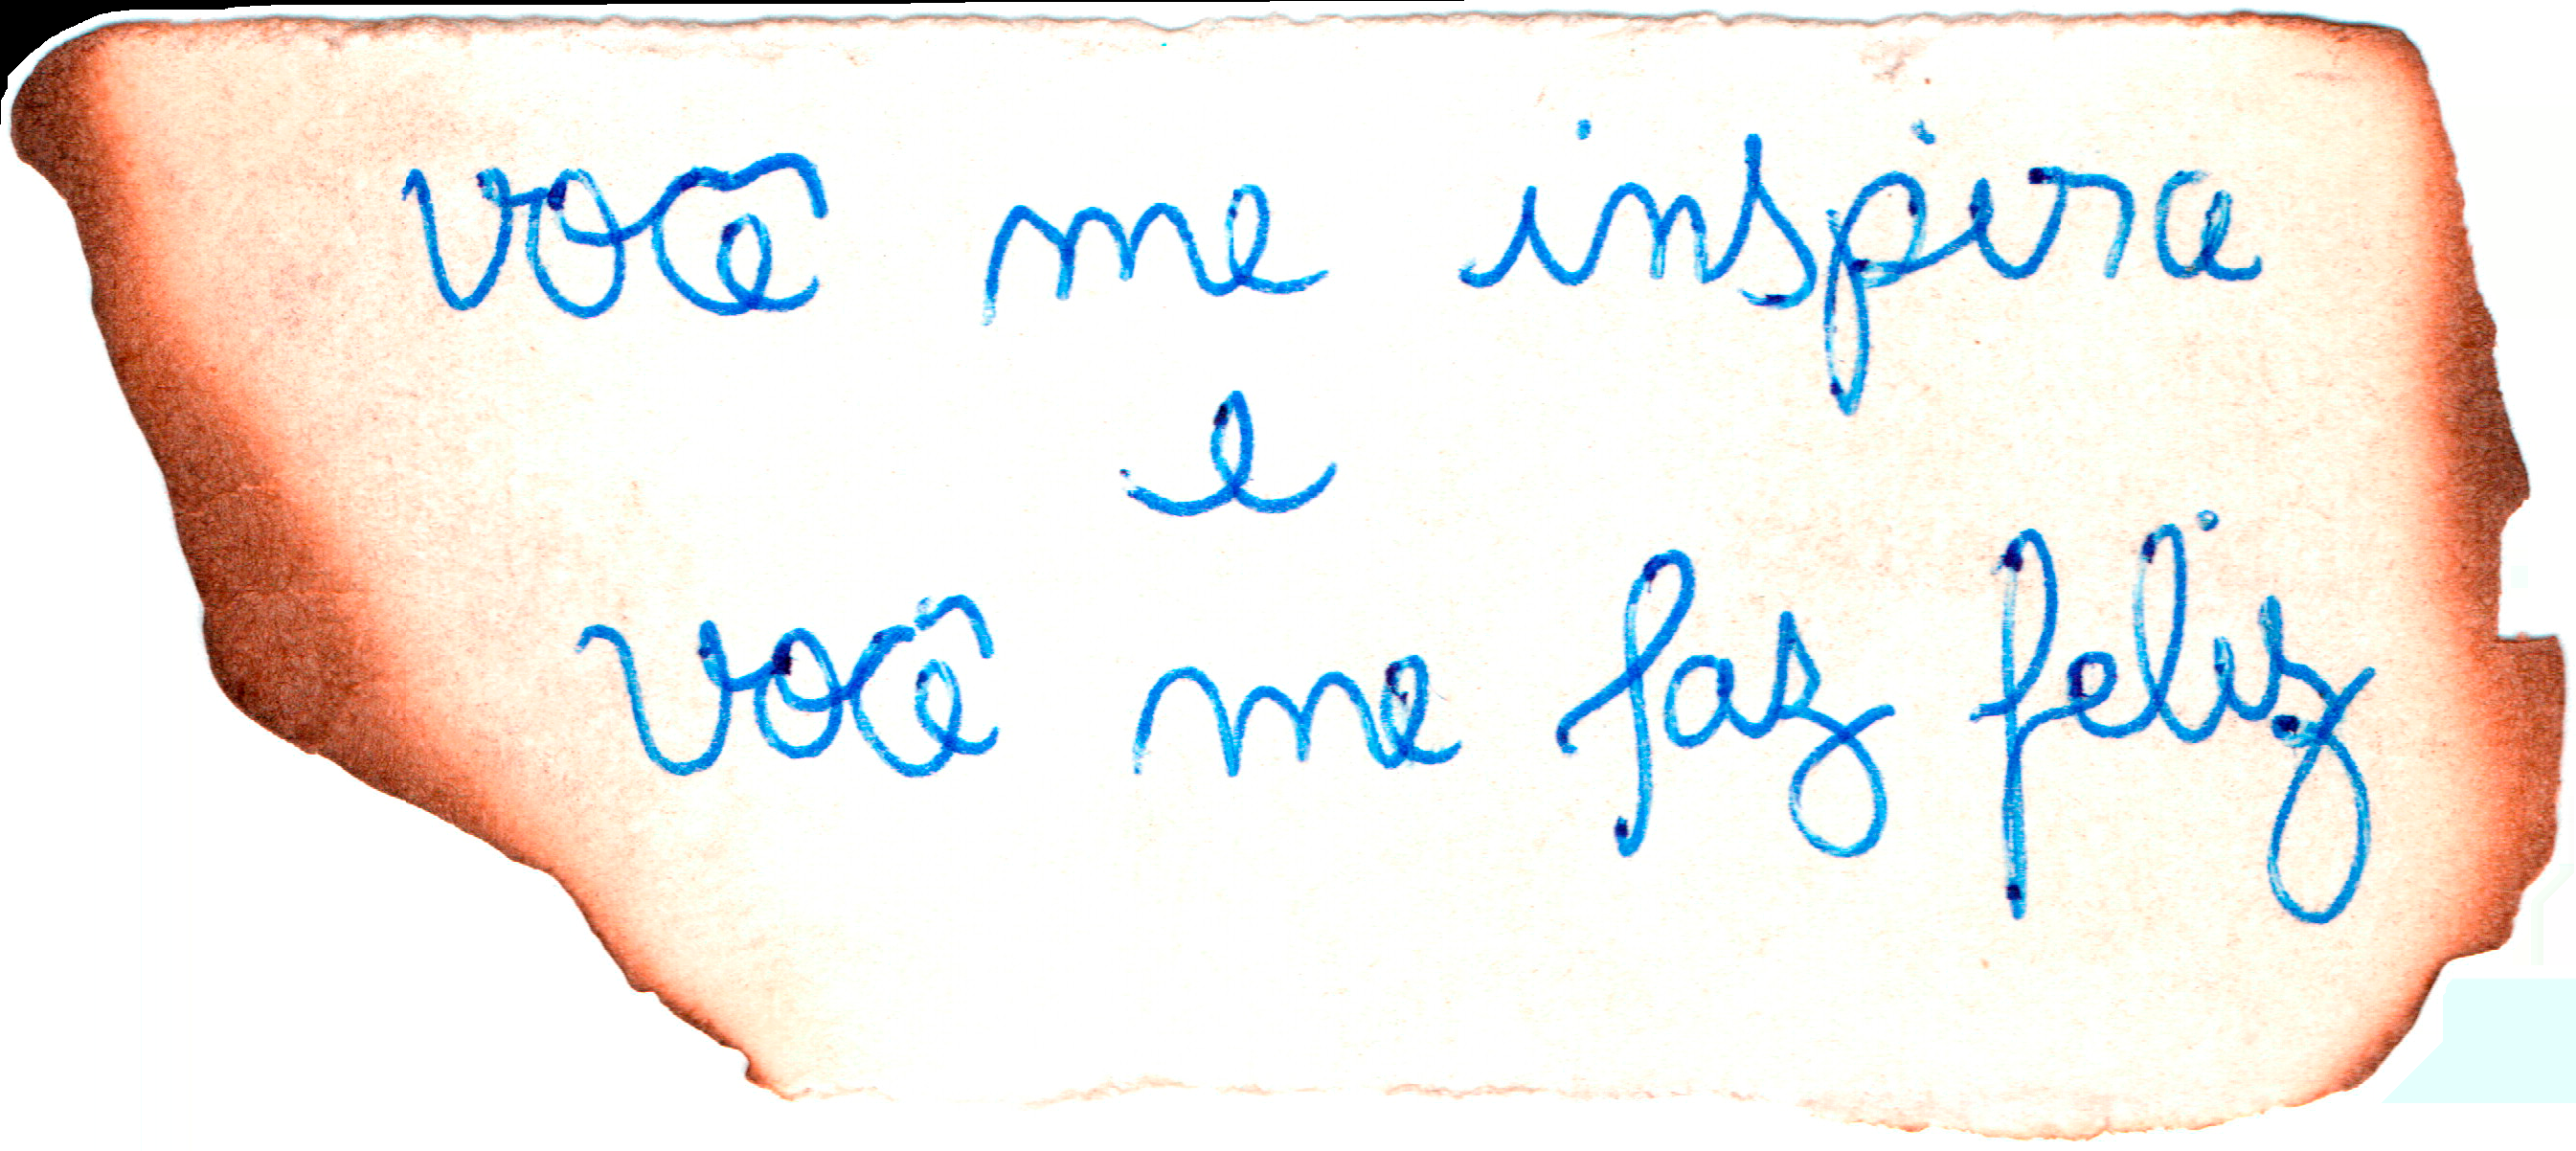 você me inspira
e
você me faz feliz